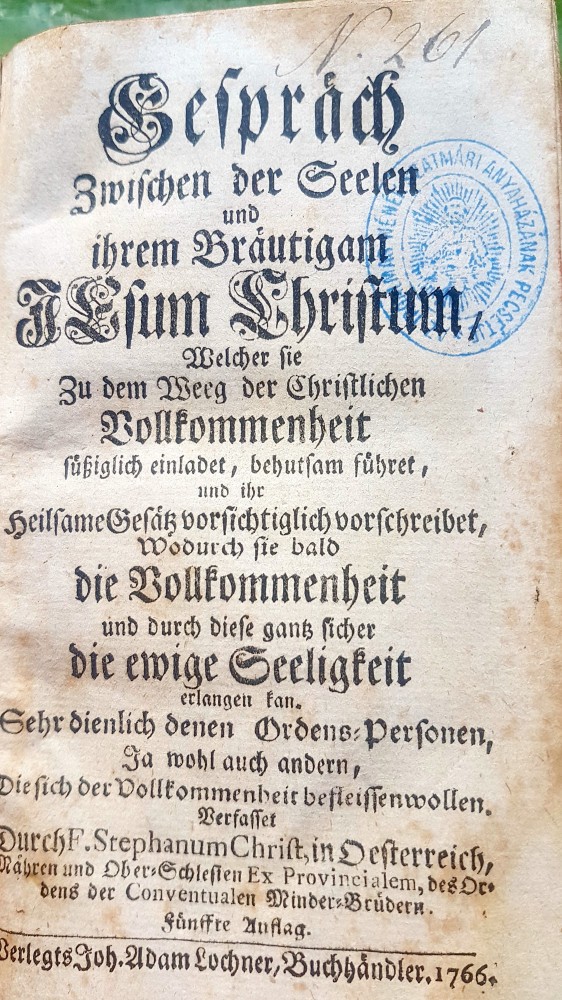 N. 261
Gespräch
Zwischen der Seelen
und
ihrem Bräutigam
JEsum Christum,
Welcher sie
Zu dem Weeg der Christlichen
Vollkommenheit
süßiglich einladet, behutsam führet,
und ihr
Heilsame Gesätz vorsichtiglich vorschreibet,
Wodurch sie bald
die Vollkommenheit
und durch diese gantz sicher
die ewige Seeligkeit
erlangen kan.
Sehr dienlich denen Ordens-Personen,
Ja wohl auch andern,
Die sich der Vollkommenheit befleissen wollen.
Verfasset
Durch F. Stephanum Christ, in Oesterreich,
Mähren und Ober-Schlesien Ex Provincialem, des Or-
dens der Conventualen Minder-Brüdern.
Fünffte Auflag.
Verlegts Joh. Adam Lochner, Buchhändler. 1766.
SZATMÁRI ANYAHÁZÁNAK PECSÉTJE